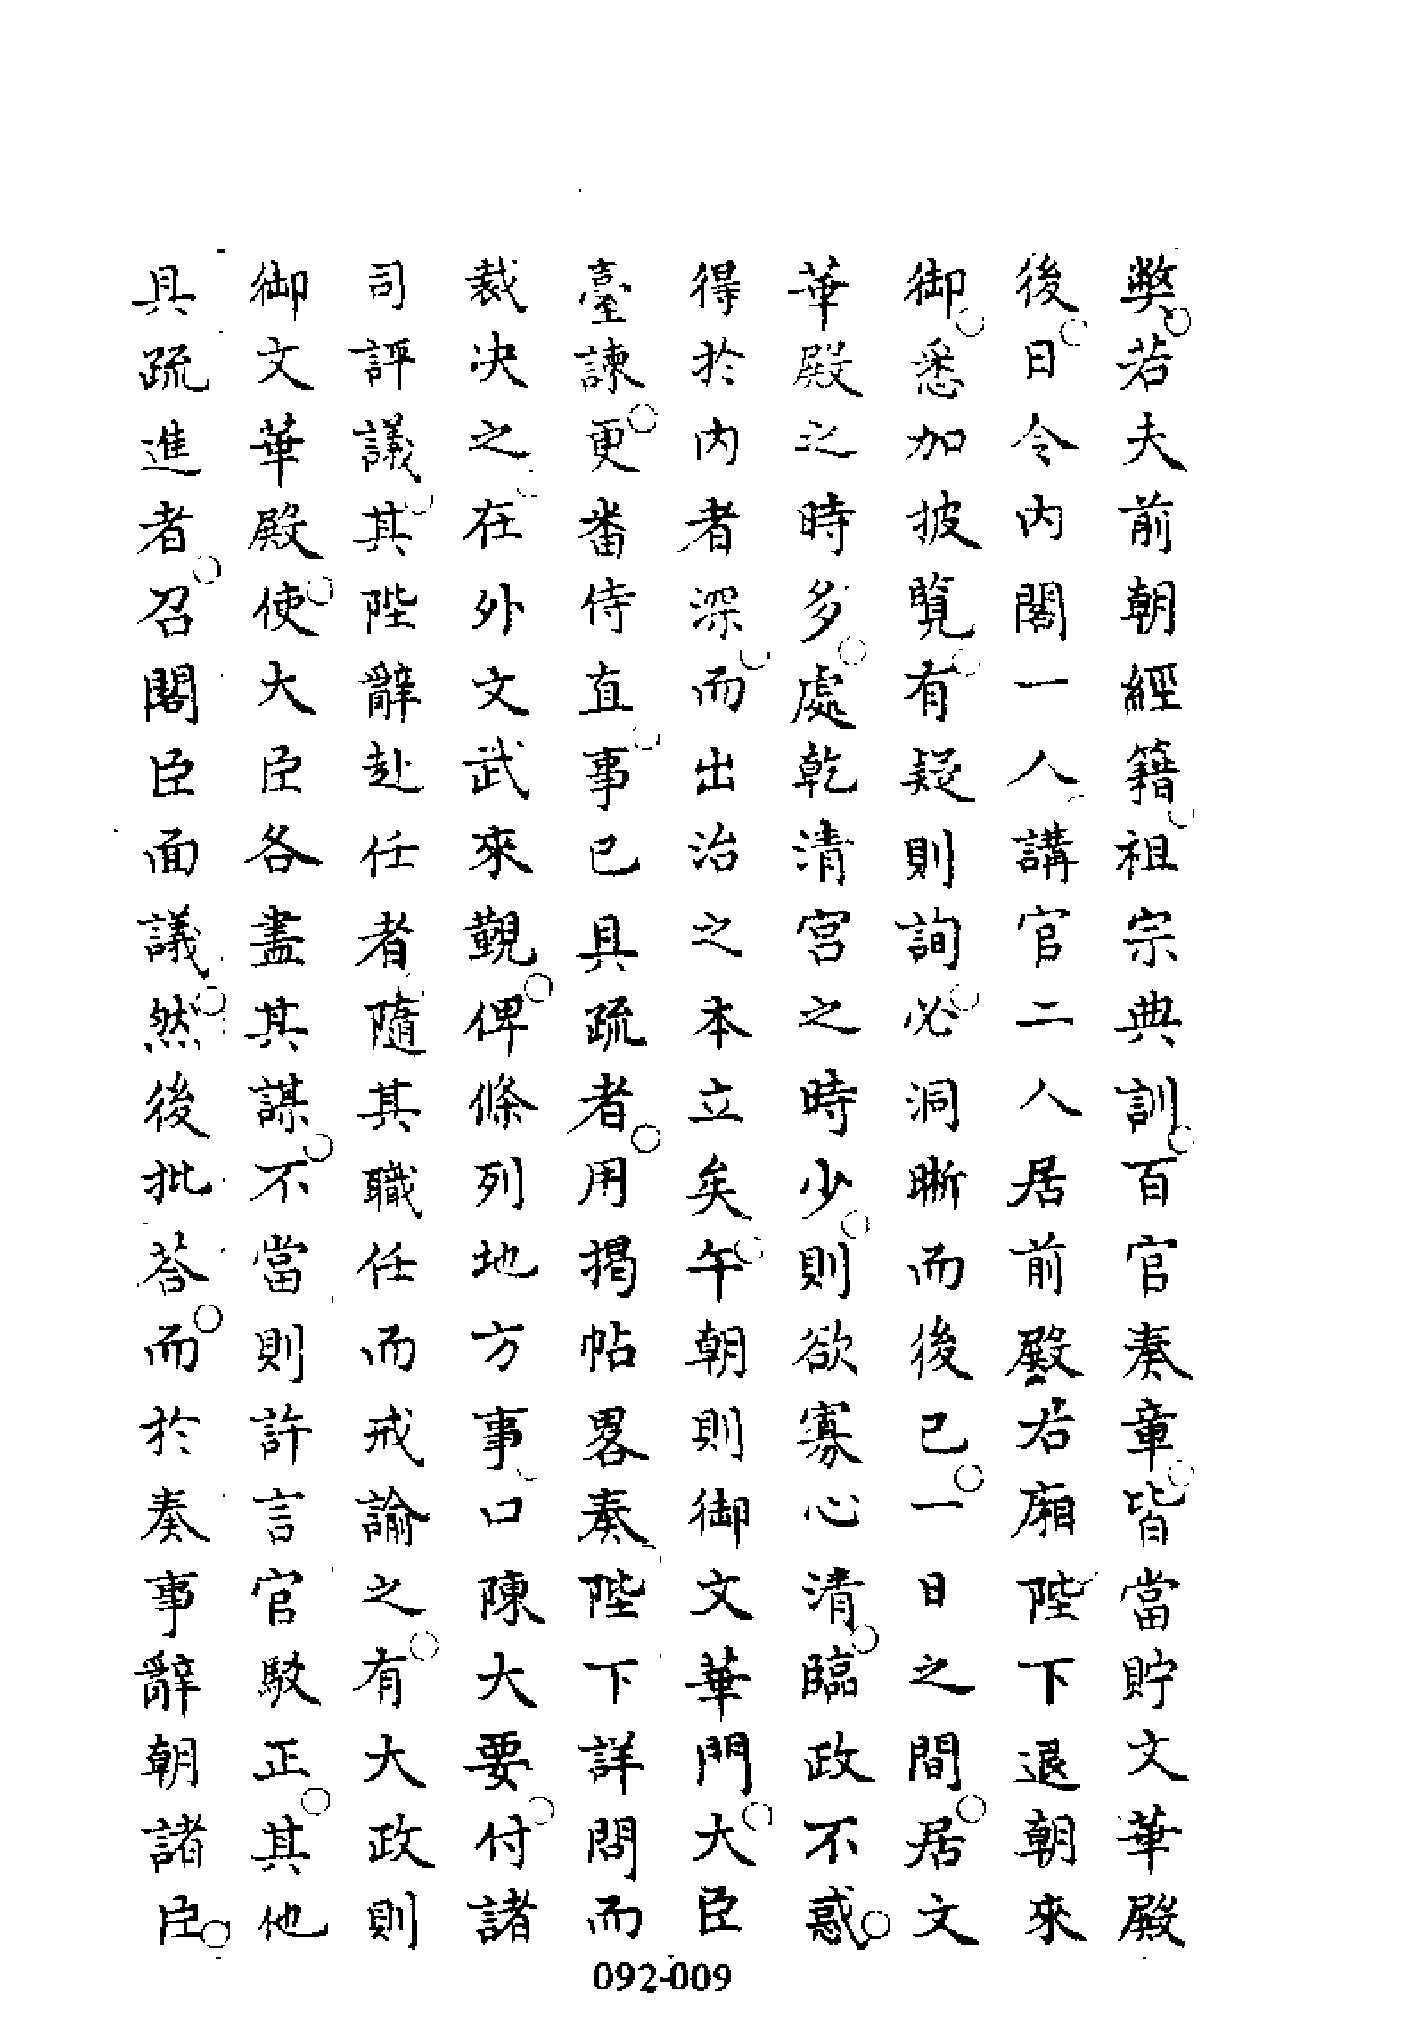 弊若夫前朝經籍祖宗典訓百官奏章皆當貯文華殿
後日令内閣一人講官二人居前殿右廂陛下退朝來
御悉加披覽有疑則詢必洞晰而後已一日之間居文
華殿之時多處乾清宮之時少則欲寡心清臨政不惑
得於内者深而出治之本立矣午朝則御文華門大臣
臺諫更番侍直事已具疏者用揭帖畧奏陛下詳問而
裁决之在外文武來覲俾條列地方事口陳大要付諸
司評議其陛辭赴任者隨其職任而戒諭之有大政則
御文華殿使大臣各盡其謀不當則許言官駁正其他
具疏進者召閣臣面議然後批荅而於奏事辭朝諸臣
092-009